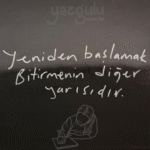 yazgulu
Yeniden başlamak
Bitirmenin diğer
yarısıdır.